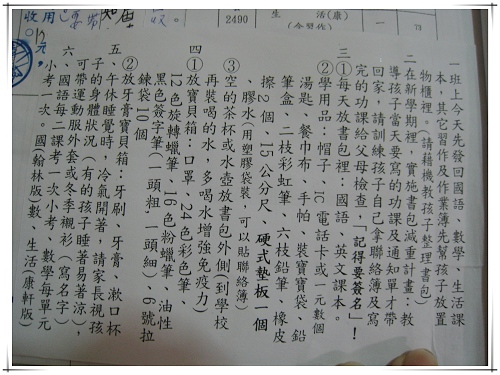 一班上今天先發回國語、數學、生活課
本，其它習作及作業簿先幫孩子放置
物櫃裡。(請藉機教孩子整理書包)
二在新學期裡，實施書包減重計畫：教
導孩子當天要寫的功課及通知單才帶
回家，請訓練孩子自己拿聯絡簿及寫
完的功課給父母檢查，「記得要簽名」！
三①每天放書包裡：國語、英文課本。
②學用品：帽子、IC電話卡或一元數個
湯匙、餐巾布、手帕、裝寶寶袋、鉛
筆盒、二枝彩虹筆、六枝鉛筆、橡皮
擦2個、15公分尺、硬式墊板一個
、膠水(用塑膠袋裝、可以貼聯絡簿)
③空的茶杯或水壺放書包外側(到學校
再裝喝的水，多喝水增強免疫力)
四①放寶貝箱：口罩、24色彩色筆、
12色旋轉蠟筆、16色粉蠟筆、油性
黑色簽字筆(一頭粗，一頭細)、6號拉
鍊袋10個
②放牙膏寶貝箱：牙刷、牙膏、漱口杯
五、午休睡覺時，冷氣開著，請家長視孩
子的身體狀況(有的孩子睡著易著涼)，
可帶運動服外套或冬季襯衫(寫名字)
六、國語每二課考一次小考、數學每單元
小考一次。國(翰林版)數、生活(康軒版)
收用
2490
生 活(康)
73